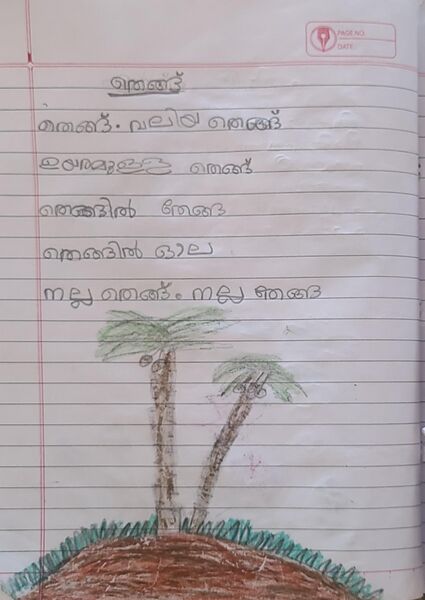 PAGE NO.
DATE:
തെങ്ങ്
തെങ്ങ്. വലിയ തെങ്ങ്
ഉയരമുള്ള തെങ്ങ്
തെങ്ങിൽ തേങ്ങ
തെങ്ങിൽ ഓല
നല്ല തെങ്ങ്. നല്ല തേങ്ങ